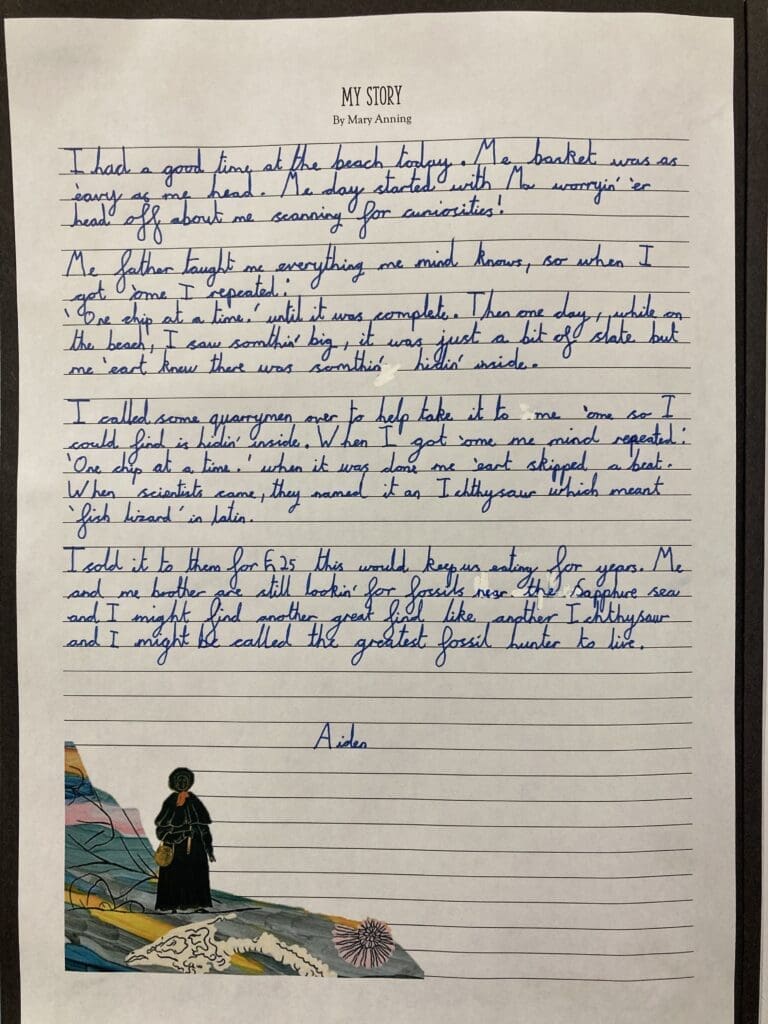 MY STORY
By Mary Anning
I had a good time at the beach today. Me basket was as
'eavy as me head. Me day started with Ma worryin' 'er
head off about me scanning for curiosities!
Me father taught me everything me mind knows, so when I
got 'ome I repeated:
'One chip at a time.' until it was complete. Then one day, while on
the beach, I saw somthin' big, it was just a bit of slate but
me 'eart knew there was somthin' hidin' inside.
I called some quarrymen over to help take it to me 'ome so I
could find is hidin' inside. When I got 'ome me mind repeated:
'One chip at a time.' when it was done me 'eart skipped a beat.
When scientists came, they named it an Ichthysaur which meant
'fish lizard' in latin.
I sold it to them for £25 this would keep us eating for years. Me
and me brother are still lookin' for fossils near the Sapphire sea
and I might find another great find like another Ichthysaur
and I might be called the greatest fossil hunter to live.
Aiden